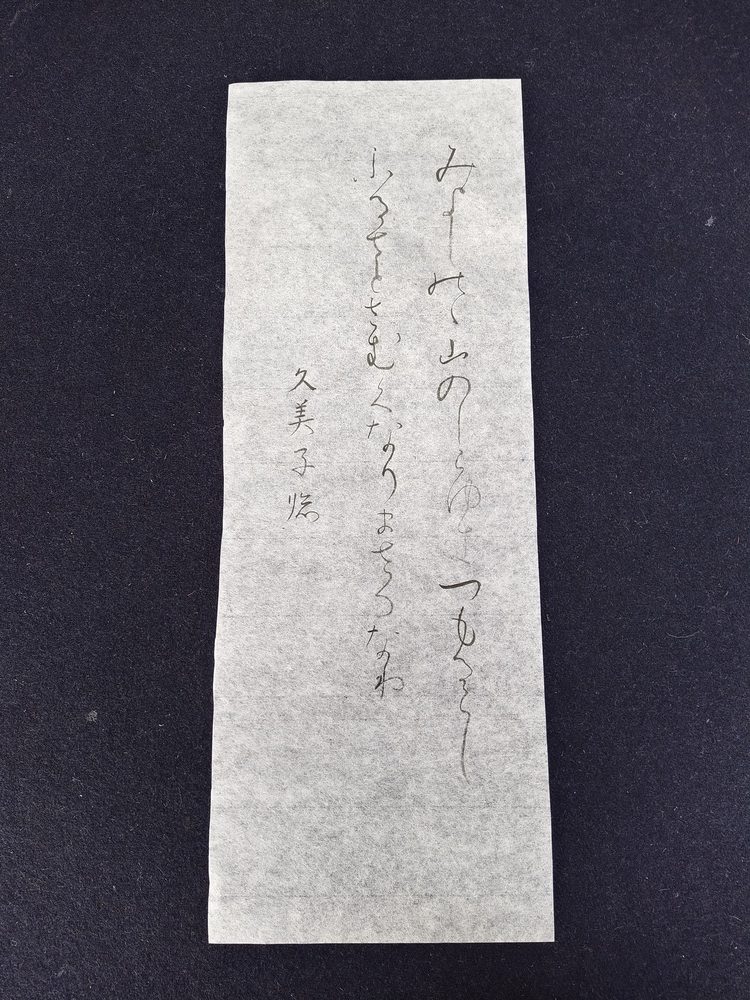 みよしのゝ山のしらゆきつもるらし
ふるさとさむくなりまさるなり
久美子臨